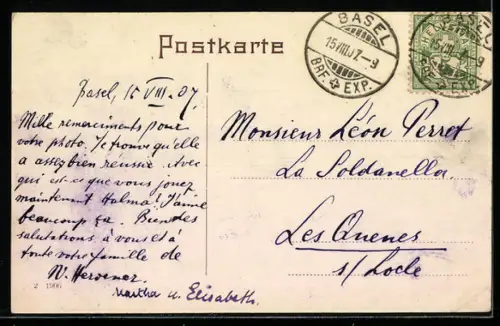 Postkarte
BASEL
15.VIII.07.-9
BRF. EXP.
Basel, 15 VIII - 07.
Mille remerciments pour
votre photo. Je trouve qu'elle
a assez bien réussie. Avec
qui est-ce que vous jouez
maintenant Halma? J'aime
beaucoup ça. Bien des
salutations à vous et à
toute votre famille de
Martha u. Elisabeth.
Monsieur Léon Perret
La Soldanella
Les Quenes
s/ Locle
2 1906